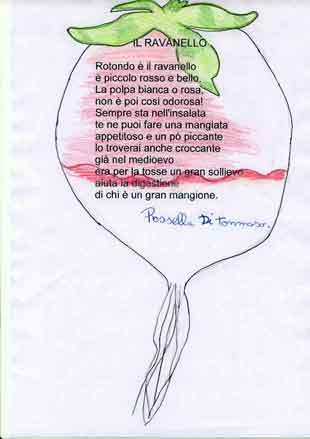 IL RAVANELLO
Rotondo è il ravanello
è piccolo rosso e bello.
La polpa bianca o rosa,
non è poi così odorosa!
Sempre sta nell'insalata
te ne puoi fare una mangiata
appetitoso e un pò piccante
lo troverai anche croccante
già nel medioevo
era per la tosse un gran sollievo
aiuta la digestione
di chi è un gran mangione.
Rossella Di Tommaso.